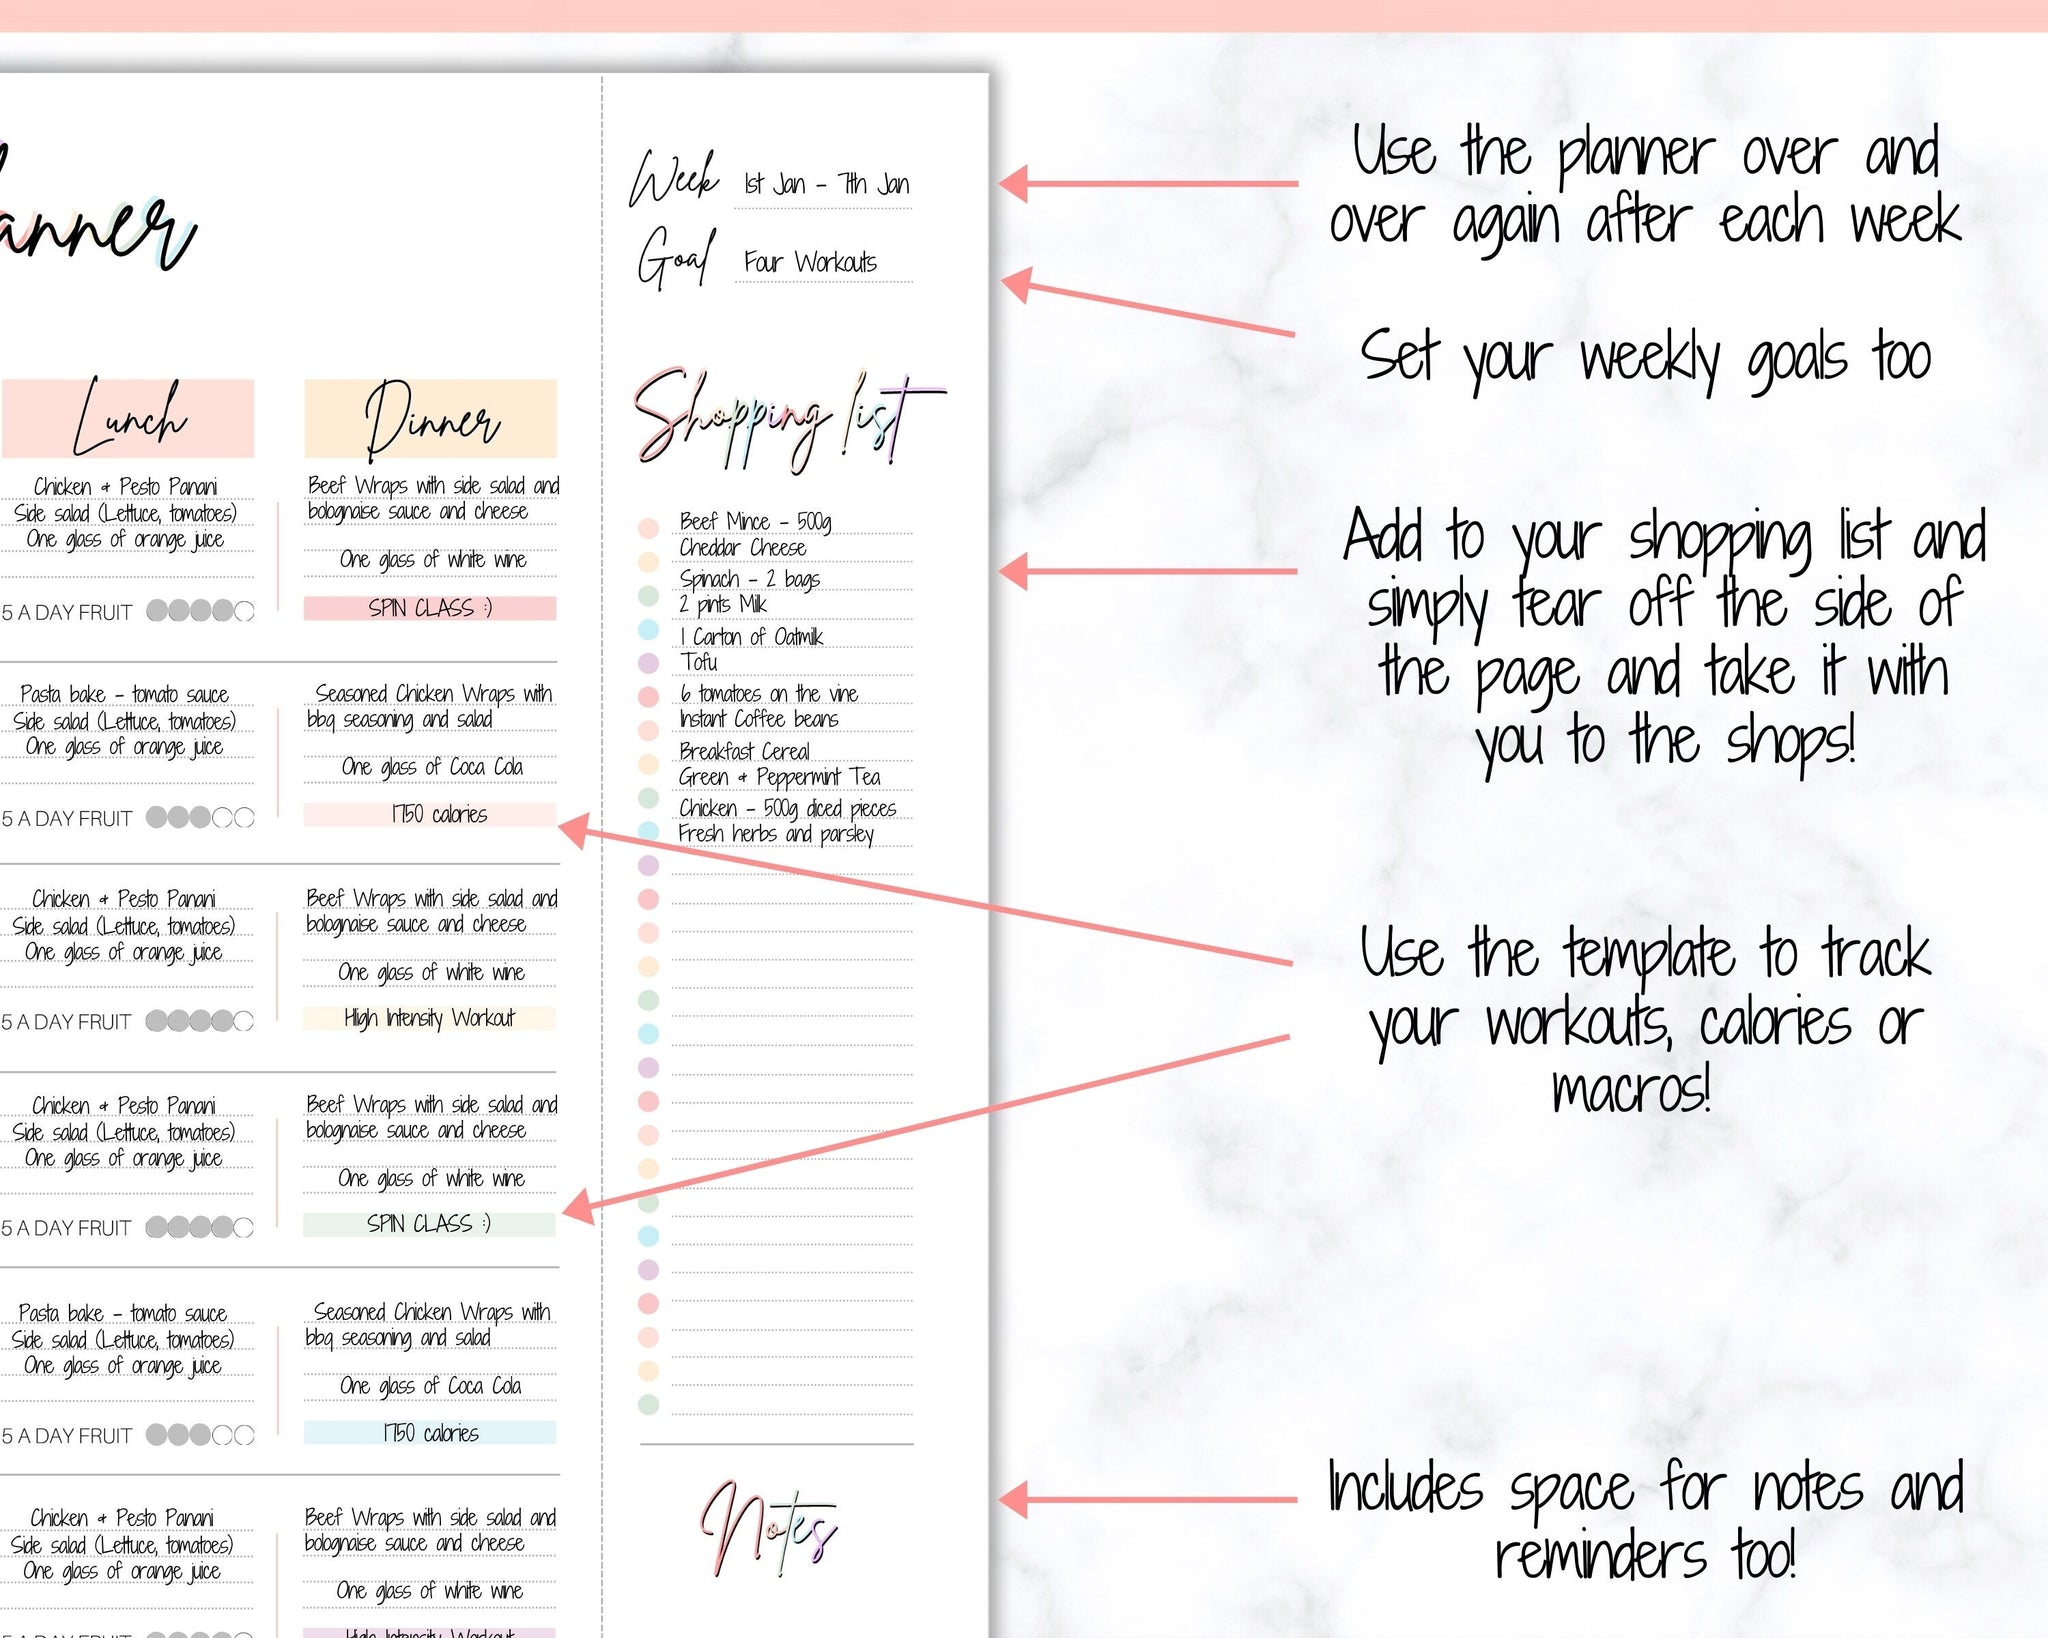 anner
Week 1st Jan - 7th Jan
Goal Four Workouts
Lunch
Chicken & Pesto Panani
Side salad (Lettuce, tomatoes)
One glass of orange juice
5 A DAY FRUIT
Dinner
Beef Wraps with side salad and
bolognaise sauce and cheese
One glass of white wine
SPIN CLASS :)
Pasta bake - tomato sauce
Side salad (Lettuce, tomatoes)
One glass of orange juice
5 A DAY FRUIT
Seasoned Chicken Wraps with
bbq seasoning and salad
One glass of Coca Cola
1750 calories
Chicken & Pesto Panani
Side salad (Lettuce, tomatoes)
One glass of orange juice
5 A DAY FRUIT
Beef Wraps with side salad and
bolognaise sauce and cheese
One glass of white wine
High Intensity Workout
Chicken & Pesto Panani
Side salad (Lettuce, tomatoes)
One glass of orange juice
5 A DAY FRUIT
Beef Wraps with side salad and
bolognaise sauce and cheese
One glass of white wine
SPIN CLASS :)
Pasta bake - tomato sauce
Side salad (Lettuce, tomatoes)
One glass of orange juice
5 A DAY FRUIT
Seasoned Chicken Wraps with
bbq seasoning and salad
One glass of Coca Cola
1750 calories
Chicken & Pesto Panani
Side salad (Lettuce, tomatoes)
One glass of orange juice
5 A DAY FRUIT
Beef Wraps with side salad and
bolognaise sauce and cheese
One glass of white wine
High Intensity Workout
Shopping list
Beef Mince - 500g
Cheddar Cheese
Spinach - 2 bags
2 pints Milk
1 Carton of Oatmilk
Tofu
6 tomatoes on the vine
Instant Coffee beans
Breakfast Cereal
Green & Peppermint Tea
Chicken - 500g diced pieces
Fresh herbs and parsley
Notes
Use the planner over and
over again after each week
Set your weekly goals too
Add to your shopping list and
simply tear off the side of
the page and take it with
you to the shops!
Use the template to track
your workouts, calories or
macros!
Includes space for notes and
reminders too!